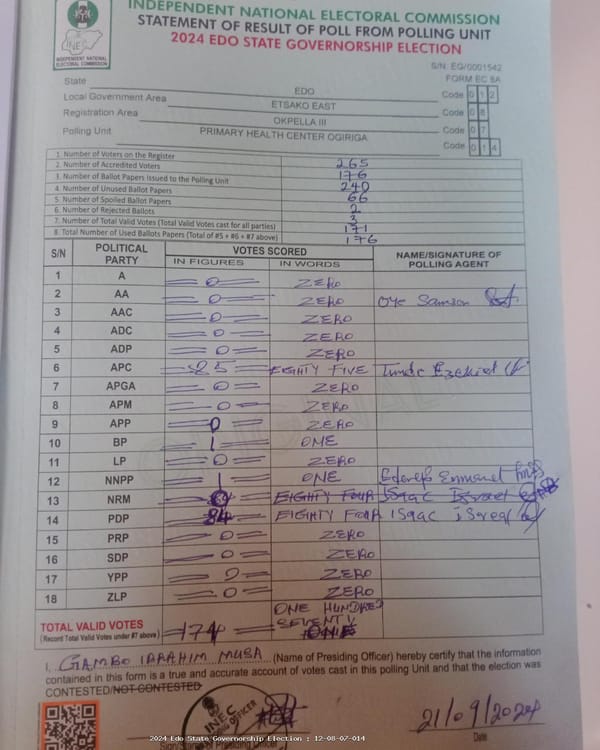 INDEPENDENT NATIONAL ELECTORAL COMMISSION
STATEMENT OF RESULT OF POLL FROM POLLING UNIT
2024 EDO STATE GOVERNORSHIP ELECTION
INEC
INDEPENDENT NATIONAL
ELECTORAL COMMISSION
S/N: EG/0001542
FORM EC 8A
State EDO Code 0 1 2
Local Government Area ETSAKO EAST Code 0 8
Registration Area OKPELLA III Code 0 7
Polling Unit PRIMARY HEALTH CENTER OGIRIGA Code 0 1 4
1. Number of Voters on the Register 265
2. Number of Accredited Voters 176
3. Number of Ballot Papers Issued to the Polling Unit 240
4. Number of Unused Ballot Papers 66
5. Number of Spoiled Ballot Papers 2
6. Number of Rejected Ballots 3
7. Number of Total Valid Votes (Total Valid Votes cast for all parties) 171
8. Total Number of Used Ballots Papers (Total of #5 + #6 + #7 above) 176
S/N POLITICAL PARTY VOTES SCORED NAME/SIGNATURE OF POLLING AGENT
IN FIGURES IN WORDS
1 A 0 ZERO
2 AA 0 ZERO Oye Samson
3 AAC 0 ZERO
4 ADC 0 ZERO
5 ADP 0 ZERO
6 APC 85 EIGHTY FIVE Ezekiel
7 APGA 0 ZERO
8 APM 0 ZERO
9 APP 0 ZERO
10 BP 1 ONE
11 LP 0 ZERO
12 NNPP 1 ONE
13 NRM EIGHTY FOUR Isaac
14 PDP 84 EIGHTY FOUR Isaac isreal
15 PRP 0 ZERO
16 SDP 0 ZERO
17 YPP 0 ZERO
18 ZLP 0 ZERO
TOTAL VALID VOTES 171 ONE HUNDRED SEVENTY ONE
(Record Total Valid Votes under #7 above)
I, GAMBO IBRAHIM MUSA (Name of Presiding Officer) hereby certify that the information
contained in this form is a true and accurate account of votes cast in this polling Unit and that the election was
CONTESTED/NOT CONTESTED
INEC
21/09/2024
Sign/Stamp of Presiding Officer Date
2024 Edo State Governorship Election : 12-08-07-014